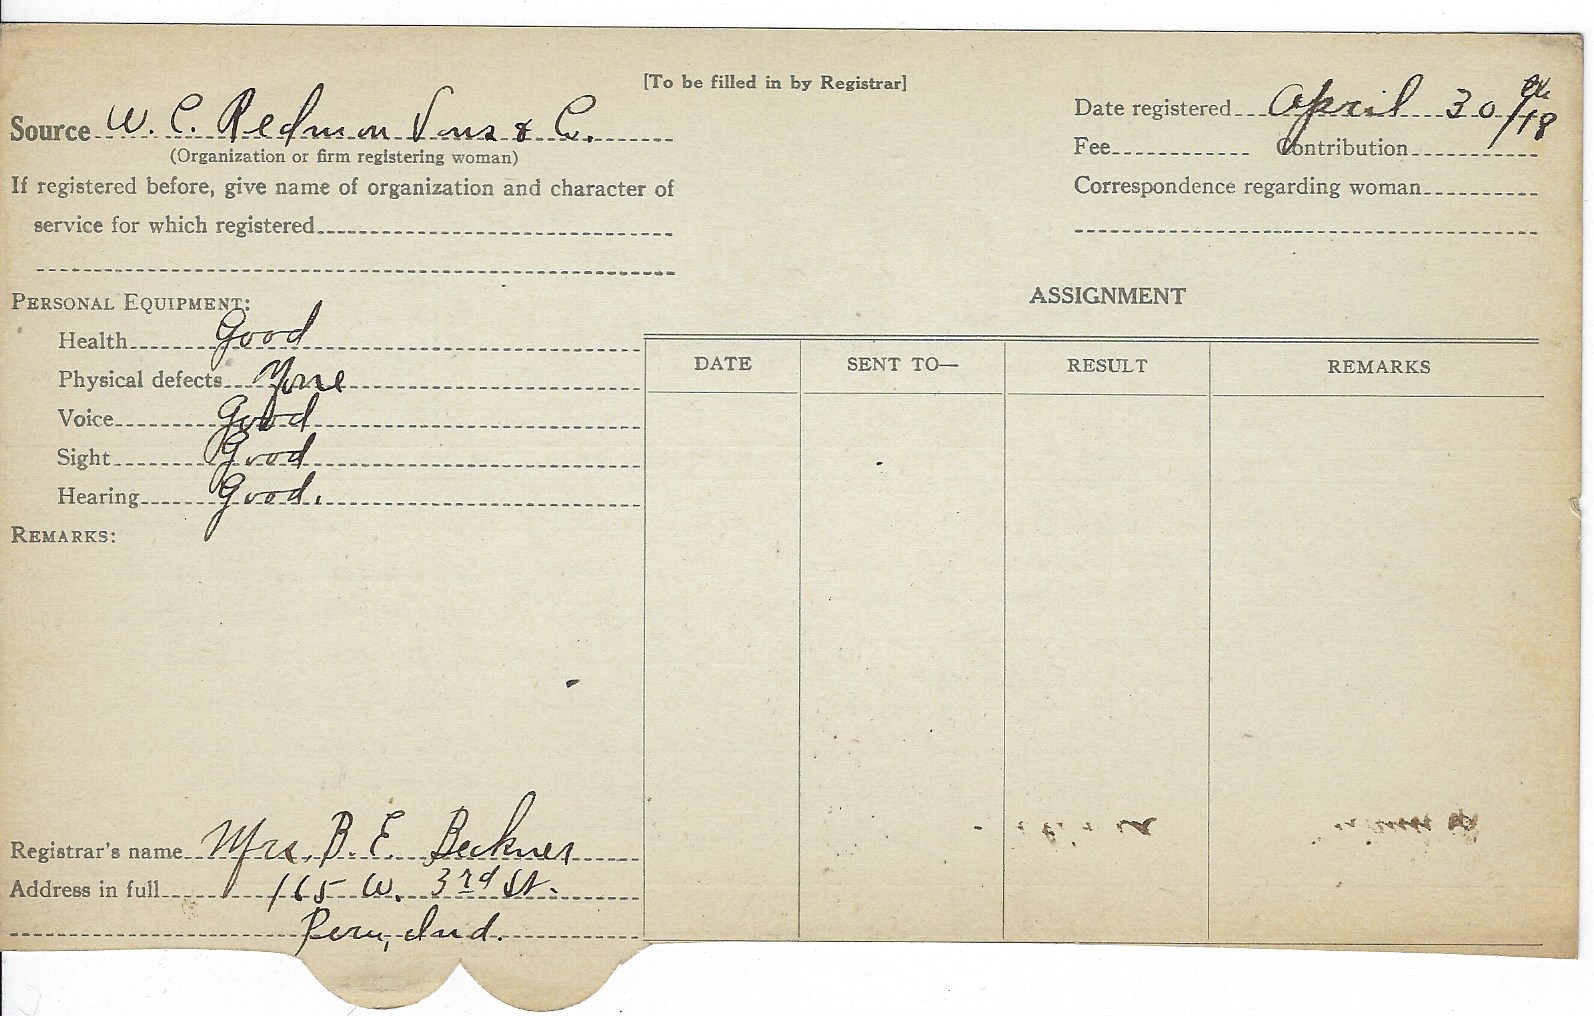 [To be filled in by Registrar]
Source W. C. Redmon Sons & Co.
(Organization or firm registering woman)
If registered before, give name of organization and character of
service for which registered
Date registered April 30th/18
Fee Contribution
Correspondence regarding woman
PERSONAL EQUIPMENT:
Health Good
Physical defects None
Voice Good
Sight Good
Hearing Good.
REMARKS:
ASSIGNMENT
DATE SENT TO— RESULT REMARKS
Registrar's name Mrs. B. E. Beckner
Address in full 165 W. 3rd St.
Peru, Ind.